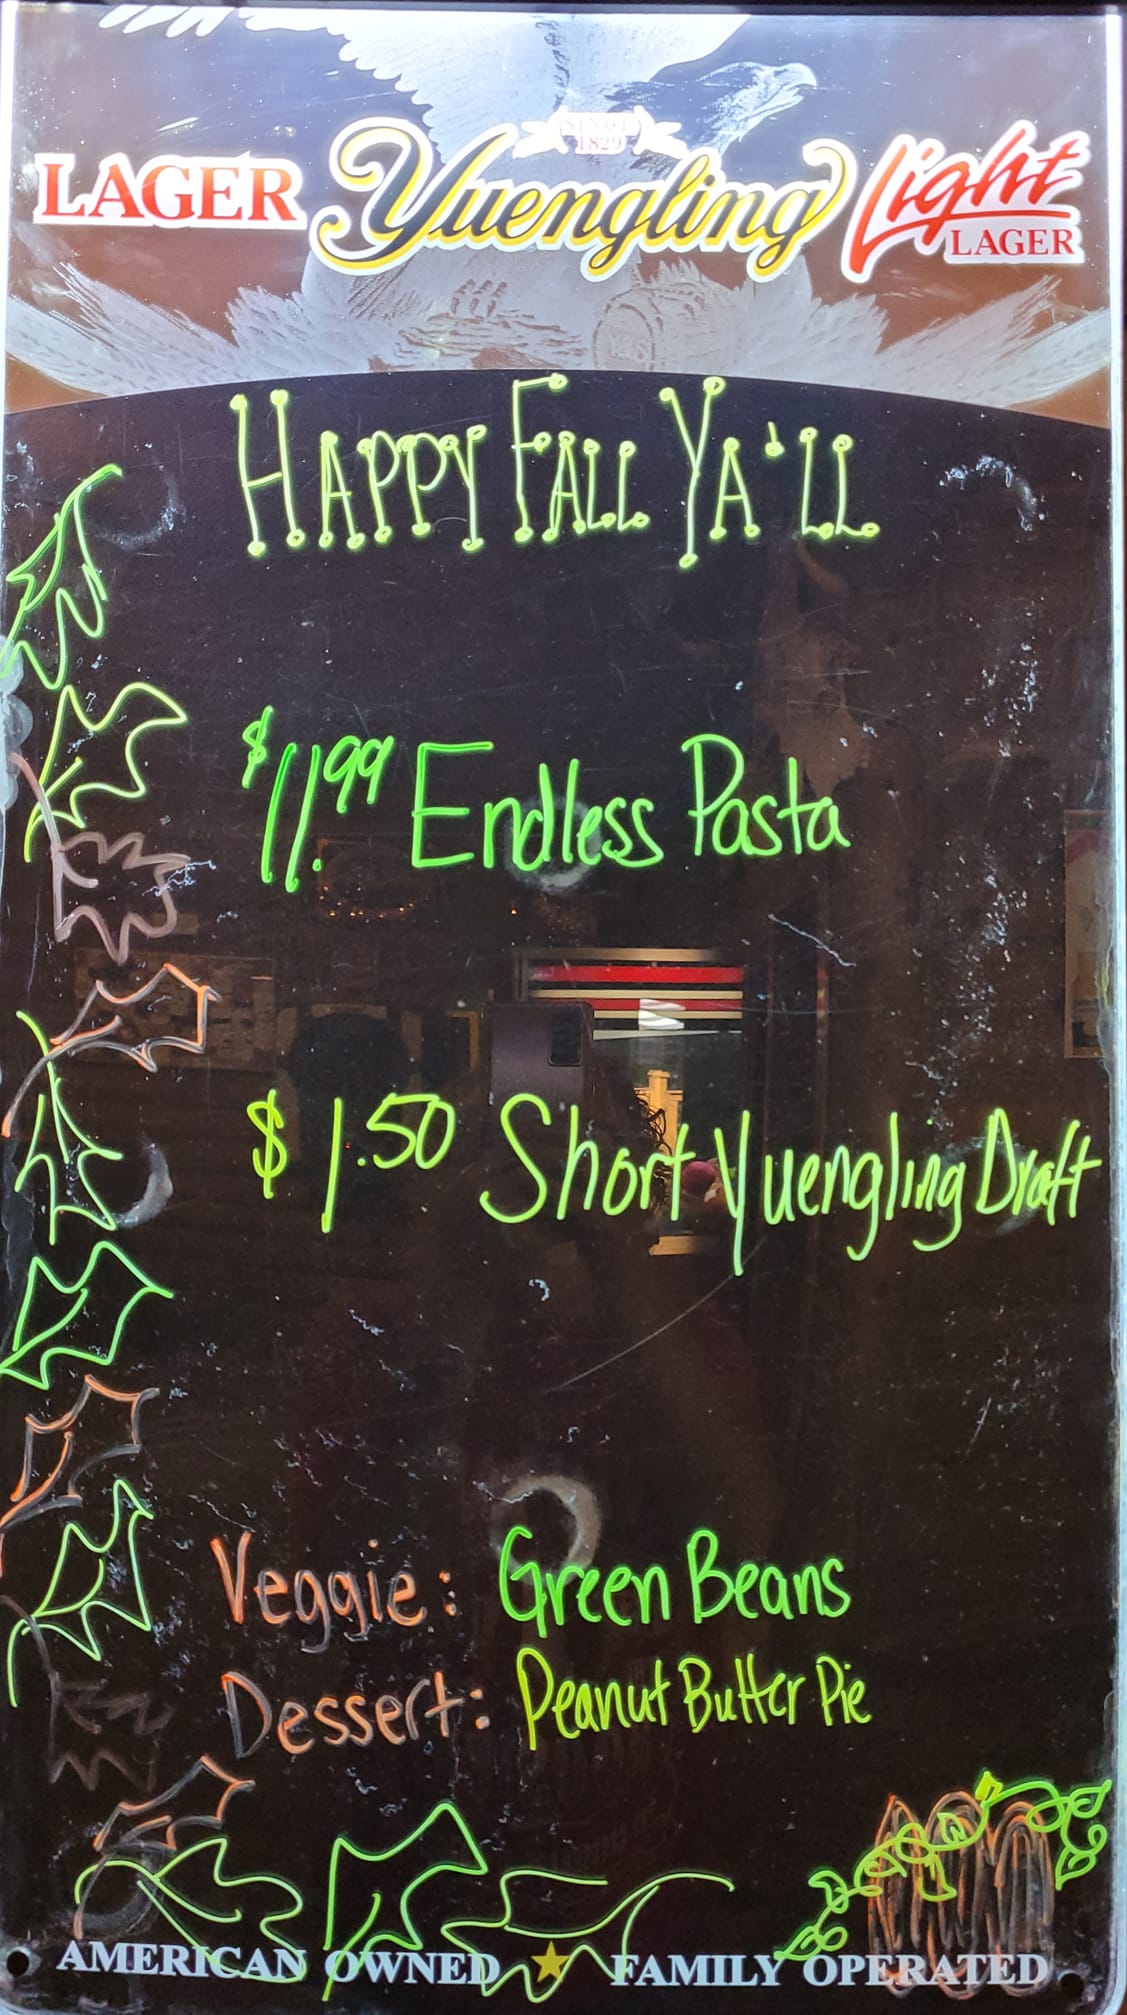 SINCE 1829
LAGER Yuengling Light LAGER
HAPPY FALL YA'LL
$11.99 Endless Pasta
$1.50 Short Yuengling Draft
Veggie: Green Beans
Dessert: Peanut Butter Pie
AMERICAN OWNED ★ FAMILY OPERATED